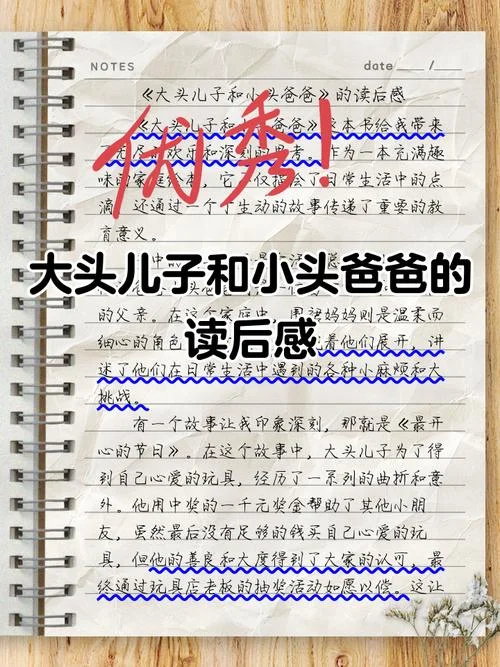 NOTES
date / 
《大头儿子和小头爸爸》的读后感
优秀!
《大头儿子和小头爸爸》这本书给我带来
欢乐和深刻的思考。作为一本充满趣
味的家庭绘本，它不仅描绘了日常生活中的点
滴，还通过一个个生动的故事传递了重要的教
育意义。
大头儿子和小头爸爸的
读后感
的父亲。在这个家庭中，围裙妈妈则是温柔而
细心的角色
着他们展开，讲
述了他们在日常生活中遇到的各种小麻烦和大
挑战。
有一个故事让我印象深刻，那就是《最开
心的节日》。在这个故事中，大头儿子为了得
到自己心爱的玩具，经历了一系列的曲折和意
外。他用中奖的一千元奖金帮助了其他小朋
友，虽然最后没有足够的钱买自己心爱的玩
具，但他的善良和大度得到了大家的认可，最
终通过玩具店老板的抽奖活动如愿以偿。这让